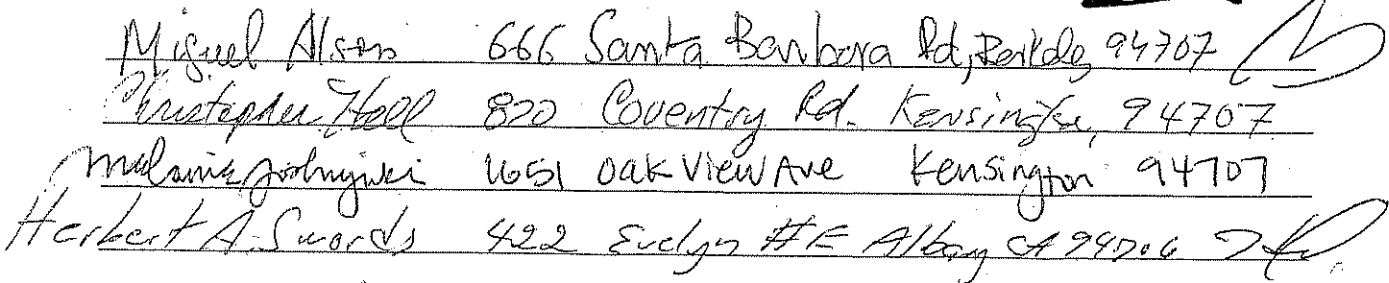 Miguel 666 Santa Barbara Rd, 94707
Christopher Hall 820 Coventry Rd. Kensington, 94707
Melanie 1651 Oak View Ave Kensington 94707
Herbert A. Swords 422 Evelyn #E Albany CA 94706